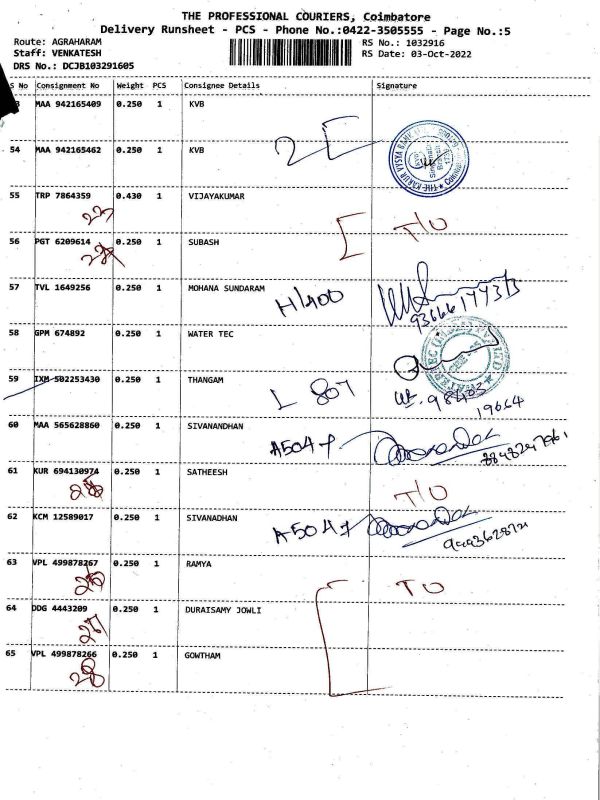 THE PROFESSIONAL COURIERS, Coimbatore
Delivery Runsheet - PCS - Phone No.:0422-3505555 - Page No.:5
Route: AGRAHARAM
RS No.: 1032916
Staff: VENKATESH
RS Date: 03-Oct-2022
DRS No.: DCJB103291605
S No Consignment No Weight PCS Consignee Details Signature
3 MAA 942165409 0.250 1 KVB
54 MAA 942165462 0.250 1 KVB
2
55 TRP 7864359 0.430 1 VIJAYAKUMAR
T/O
56 PGT 6209614 0.250 1 SUBASH
57 TVL 1649256 0.250 1 MOHANA SUNDARAM
H/400
58 GPM 674892 0.250 1 WATER TEC
59 IXM 502253430 0.250 1 THANGAM
L 807
98403
19664
60 MAA 565628860 0.250 1 SIVANANDHAN
A504
61 KUR 694130974 0.250 1 SATHEESH
T/O
62 KCM 12589017 0.250 1 SIVANADHAN
A504
63 VPL 499878267 0.250 1 RAMYA
TO
64 DDG 4443209 0.250 1 DURAISAMY JOWLI
27
65 VPL 499878266 0.250 1 GOWTHAM
28